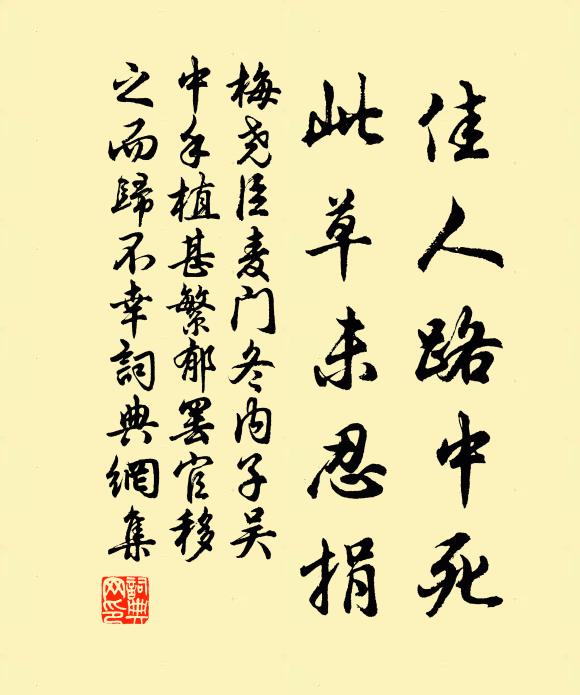 佳人路中死
此草未忍捐
梅尧臣麦门冬内子吴
中手植甚繁郁罢官移
之而歸不幸詞典網集